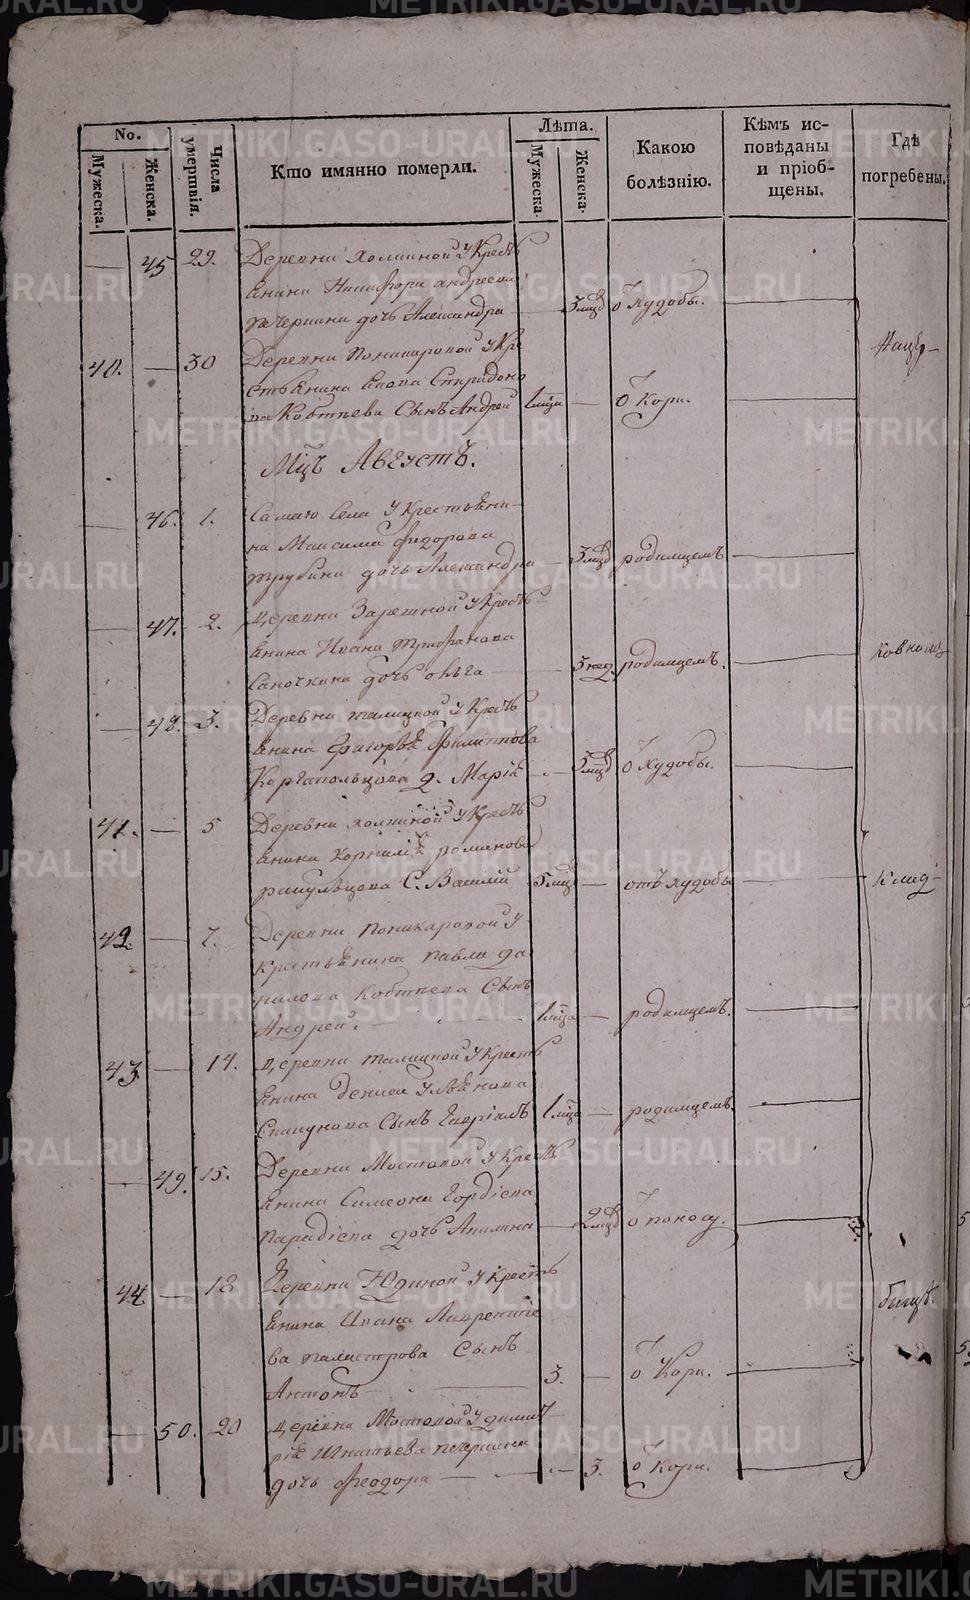 No.
Мужеска.
Женска.
Числа умертвія.
Кто имянно померли.
Лѣта.
Мужеска.
Женска.
Какою болѣзнію.
Кѣмъ исповѣданы и пріобщены.
Гдѣ погребены.
45 29. Деревни Холкиной у Кресть
янина Никифора Андреева
Печеркина дочь Александра 3 мцд о худобы.
40. 30 Деревни Поникаровой у Кре
стьянина Спиридоно
ва Коптяева Сынъ Андрей 1 мца о Кори.
Мцъ Августъ.
46. 1. Самаго Села у Крестьяни-
на Максима Федорова
Трубина дочь Александра 3 мцд родимцемъ
47. 2. Деревни Зарешной у Кресть-
янина Ивана Труфанова
Саночкина дочь Ольга 3 нед. родимцемъ.
48. 3. Деревни Талицкой у Кресть
янина Григорья Филиппова
Коргапольцова д. Марія 3 мцд о худобы.
41. 5 Деревни Холкиной у Кресть
янина Корнилія Романова
Ракульцова С. Василій 5 мцд отъ худобы
42. 7. Деревни Поникаровой у
Крестьянина Павла Да
нилова Коптяева Сынъ
Андрей. 1 мца родимцемъ.
43 14. Деревни Талицкой у Кресть
янина Дениса Ульянова
Сынъ Гавріилъ 1 мца родимцемъ.
49. 15. Деревни Мостовой у Кресть
янина Симеона Гордіева
дочь Акилина 2 мцд о поносу.
44. 18 Деревни Юдиной у Кресть
янина Ивана Лаврентіе
ва Паластрова Сынъ
Антонъ 3. о Кори.
50. 20 Деревни Мостовой у Димит
рія Игнатьева Печеркина
дочь Феодора 3. о Кори.
METRIKI.GASO-URAL.RU